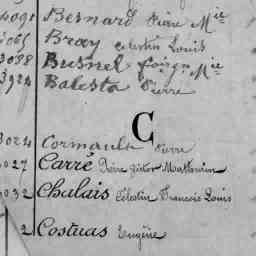 4091 Besnard Pierre M^ie
3065 Bray Celestin Louis
3088 Busnel M^ie
3924 Balesta Pierre
C
3024 Cormault Pierre
027 Carré Pierre Victor Mathurin
032 Chalais Célestin François Louis
2 Costuas Eugène